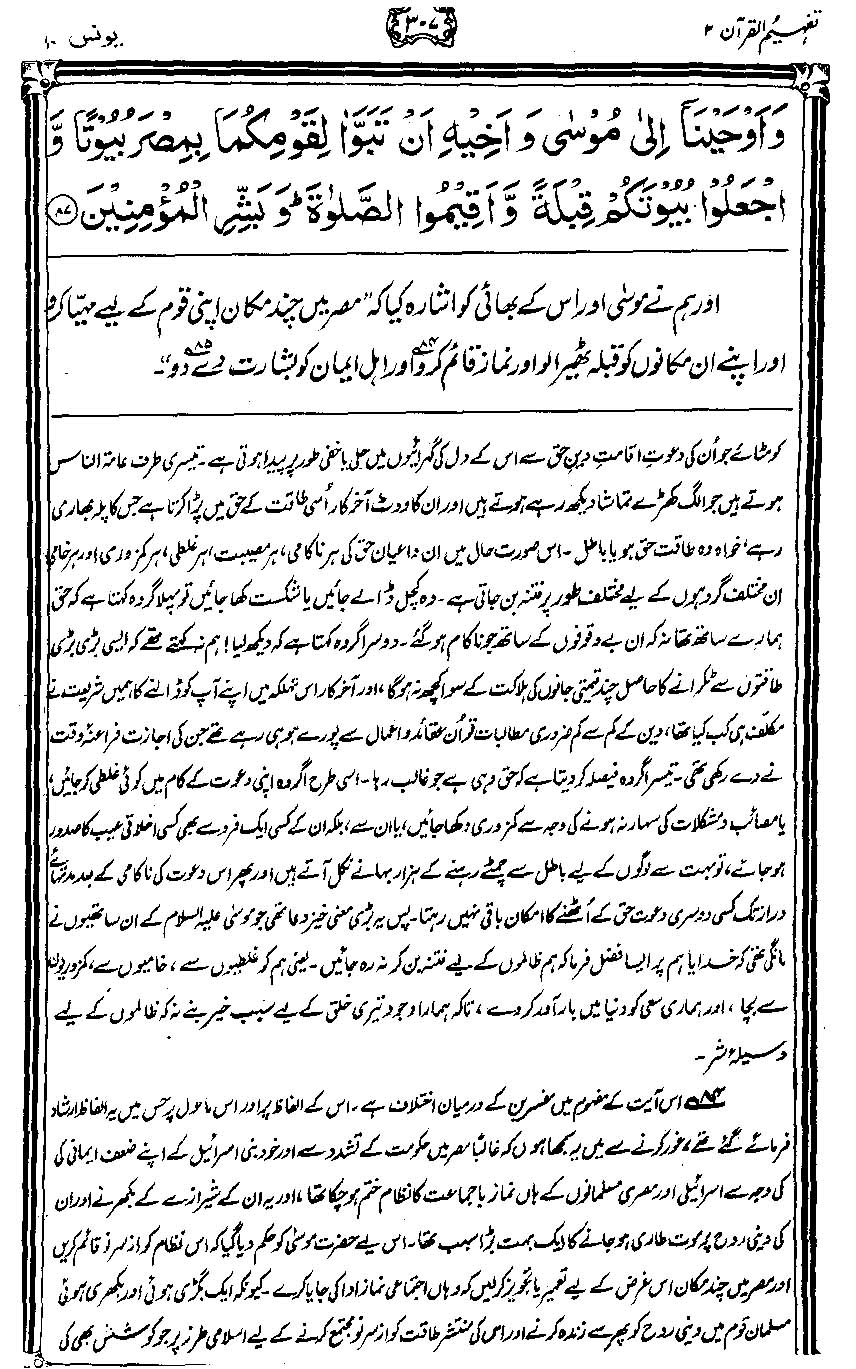 تفہیم القرآن ۲
۳۰۷
یونس ۱۰
وَاَوْحَیْنَاۤ اِلٰی مُوْسٰی وَاَخِیْہِ اَنْ تَبَوَّاٰ لِقَوْمِکُمَا بِمِصْرَ بُیُوْتًا وَّ
اجْعَلُوْا بُیُوْتَکُمْ قِبْلَۃً وَّاَقِیْمُوا الصَّلٰوۃَ ؕ وَبَشِّرِ الْمُؤْمِنِیْنَ ﴿۸۷﴾
اور ہم نے موسٰی اور اس کے بھائی کو اشارہ کیا کہ ”مصر میں چند مکان اپنی قوم کے لیے مہیّا کرو
اور اپنے ان مکانوں کو قبلہ ٹھیرا لو اور نماز قائم کرو۸۴ اور اہل ایمان کو بشارت دے دو۸۵“۔
کو مٹائے جو اُن کی دعوتِ اقامتِ دینِ حق سے اس کے دل کی گہرائیوں میں جلی یا خفی طور پر پیدا ہوتی ہے۔ تیسری طرف عامۃ الناس
ہوتے ہیں جو الگ کھڑے تماشا دیکھ رہے ہوتے ہیں اور ان کا ووٹ آخرکار اُسی طاقت کے حق میں پڑا کرتا ہے جس کا پلہ بھاری
رہے، خواہ وہ طاقت حق ہو یا باطل۔ اس صورت حال میں ان داعیان حق کی ہر ناکامی، ہر مصیبت، ہر غلطی، ہر کمزوری اور ہر خامی
اِن مختلف گروہوں کے لیے مختلف طور پر فتنہ بن جاتی ہے۔ وہ کچل ڈالے جائیں یا شکست کھا جائیں تو پہلا گروہ کہتا ہے کہ حق
ہمارے ساتھ تھا نہ کہ ان بے وقوفوں کے ساتھ جو ناکام ہو گئے۔ دوسرا گروہ کہتا ہے کہ دیکھ لیا! ہم نہ کہتے تھے کہ ایسی بڑی بڑی
طاقتوں سے ٹکرانے کا حاصل چند قیمتی جانوں کی ہلاکت کے سوا کچھ نہ ہو گا، اور آخر کار اس تہلکہ میں اپنے آپ کو ڈالنے کا ہمیں شریعت نے
مکلّف ہی کب کیا تھا، دین کے کم سے کم ضروری مطالبات تو اُن عقائد و اعمال سے پورے ہو ہی رہے تھے جن کی اجازت فراعنۂ وقت
نے دے رکھی تھی۔ تیسرا گروہ فیصلہ کر دیتا ہے کہ حق وہی ہے جو غالب رہا۔ اسی طرح اگر وہ اپنی دعوت کے کام میں کوئی غلطی کر جائیں،
یا مصائب و مشکلات کی سہار نہ ہونے کی وجہ سے کمزوری دکھا جائیں، یا ان سے، بلکہ ان کے کسی ایک فرد سے بھی کسی اخلاقی عیب کا صدور
ہو جائے، تو بہت سے لوگوں کے لیے باطل سے چمٹے رہنے کے ہزار بہانے نکل آتے ہیں اور پھر اس دعوت کی ناکامی کے بعد مدتہائے
دراز تک کسی دوسری دعوت حق کے اُٹھنے کا امکان باقی نہیں رہتا۔ پس یہ بڑی معنی خیز دعا تھی جو موسٰی علیہ السلام کے ان ساتھیوں نے
مانگی تھی کہ خدایا ہم پر ایسا فضل فرما کہ ہم ظالموں کے لیے فتنہ بن کر نہ رہ جائیں۔ یعنی ہم کو غلطیوں سے، خامیوں سے، کمزوریوں
سے بچا، اور ہماری سعی کو دنیا میں بار آور کر دے، تاکہ ہمارا وجود تیری خلق کے لیے سبب خیر بنے نہ کہ ظالموں کے لیے
وسیلۂ شر۔
۸۴ اس آیت کے مفہوم میں مفسرین کے درمیان اختلاف ہے۔ اس کے الفاظ پر اور اس ماحول پر جس میں یہ الفاظ ارشاد
فرمائے گئے تھے، غور کرنے سے میں یہ سمجھا ہوں کہ غالباً مصر میں حکومت کے تشدد سے اور خود بنی اسرائیل کے اپنے ضعف ایمانی کی
کی وجہ سے اسرائیلی اور مصری مسلمانوں کے ہاں نماز باجماعت کا نظام ختم ہو چکا تھا، اور یہ ان کے شیرازے کے بکھرنے اور ان
کی دینی روح پر موت طاری ہو جانے کا ایک بہت بڑا سبب تھا۔ اس لیے حضرت موسٰی کو حکم دیا گیا کہ اس نظام کو از سر نو قائم کریں
اور مصر میں چند مکان اس غرض کے لیے تعمیر یا تجویز کر لیں کہ وہاں اجتماعی نماز ادا کی جایا کرے۔ کیونکہ ایک بگڑی ہوئی اور بکھری ہوئی
مسلمان قوم میں دینی روح کو پھر سے زندہ کرنے اور اس کی منتشر طاقت کو از سر نو مجتمع کرنے کے لیے اسلامی طرز پر جو کوشش بھی کی